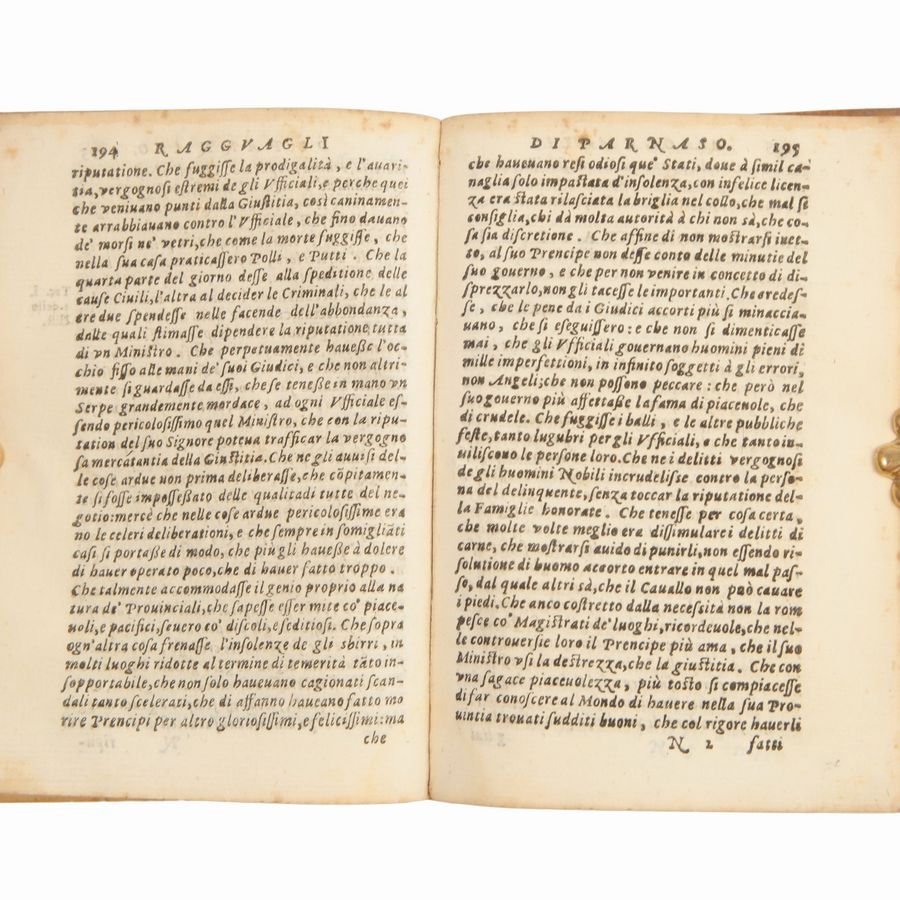 194 RAGGVAGLI
riputatione. Che fuggiſſe la prodigalità, e l'auari-
tia, vergognoſi eſtremi de gli Vfficiali, e perche quei
che veniuano punti dalla Giuſtitia, così caninamen-
te arrabbiauano contro l'Vfficiale, che fino dauano
de' morſi ne' vetri, che come la morte fuggiſſe, che
nella ſua caſa praticaſſero Polli, e Putti. Che la
quarta parte del giorno deſſe alla ſpeditione delle
cauſe Ciuili, l'altra al decider le Criminali, che le al
tre due ſpendeſſe nelle facende dell'abbondanza,
dalle quali ſtimaſſe dipendere la riputatione tutta
di vn Miniſtro. Che perpetuamente haueſſe l'oc-
chio fiſſo alle mani de' ſuoi Giudici, e che non altri-
mente ſi guardaſſe da eſſi, che ſe teneſſe in mano vn
Serpe grandemente mordace, ad ogni Vfficiale eſ-
ſendo pericoloſiſſimo quel Miniſtro, che con la ripu-
tation del ſuo Signore poteua trafficar la vergogno
ſa mercátantia della Giuſtitia. Che ne gli auuiſi del-
le coſe ardue non prima deliberaſſe, che cōpitamen-
te ſi foſſe impoſſeſſato delle qualitadi tutte del ne-
gotio: mercè che nelle coſe ardue pericoloſiſſime era
no le celeri deliberationi, e che ſempre in ſomigliāti
caſi ſi portaſſe di modo, che più gli haueſſe à dolere
di hauer operato poco, che di hauer fatto troppo.
Che talmente accommodaſſe il genio proprio alla na
tura de' Prouinciali, che ſapeſſe eſſer mite co' piace-
uoli, e pacifici, ſeuero co' diſcoli, e ſeditioſi. Che ſopra
ogn'altra coſa frenaſſe l'inſolenze de gli sbirri, in
molti luoghi ridotte al termine di temerità tāto in-
ſopportabile, che non ſolo haueuano cagionati ſcan-
dali tanto ſcelerati, che di affanno haueano fatto mo
rire Prencipi per altro glorioſiſſimi, e feliciſſimi: ma
che
DI PARNASO. 195
che haueuano reſi odioſi que' Stati, doue à ſimil ca-
naglia ſolo impaſtata d'inſolenza, con infelice licen-
za era ſtata rilaſciata la briglia nel collo, che mal ſi
conſiglia, chi dà molta autorità à chi non sà, che co-
ſa ſia diſcretione. Che affine di non moſtrarſi inet-
to, al ſuo Prencipe non deſſe conto delle minutie del
ſuo gouerno, e che per non venire in concetto di di-
ſprezzarlo, non gli taceſſe le importanti. Che credeſ-
ſe, che le pene da i Giudici accorti più ſi minaccia-
uano, che ſi eſeguiſſero: e che non ſi dimenticaſſe
mai, che gli Vfficiali gouernano huomini pieni di
mille imperfettioni, in infinito ſoggetti à gli errori,
non Angeli; che non poſſono peccare: che però nel
ſuo gouerno più affettaſſe la fama di piaceuole, che
di crudele. Che fuggiſſe i balli, e le altre pubbliche
feſte, tanto lugubri per gli Vfficiali, e che tanto in-
uiliscono le perſone loro. Che ne i delitti vergognoſi
de gli huomini Nobili incrudeliſſe contro la perſo-
na del delinquente, ſenza toccar la riputatione del-
la Famiglie honorate. Che teneſſe per coſa certa,
che molte volte meglio era diſſimulare i delitti di
carne, che moſtrarſi auido di punirli, non eſſendo ri-
ſolutione di huomo accorto entrare in quel mal paſ-
ſo, dal quale altri sà, che il Cauallo non può cauare
i piedi. Che anco coſtretto dalla neceſſità non la rom
peſce co' Magiſtrati de' luoghi, ricordeuole, che nel-
le controuerſie loro il Prencipe più ama, che il ſuo
Miniſtro vſi la deſtrezza, che la giuſtitia. Che con
vna ſagace piaceuolezza, più toſto ſi compiaceſſe
di far conoſcere al Mondo di hauere nella ſua Pro-
uintia trouati ſudditi buoni, che col rigore hauerli
N 2 fatti